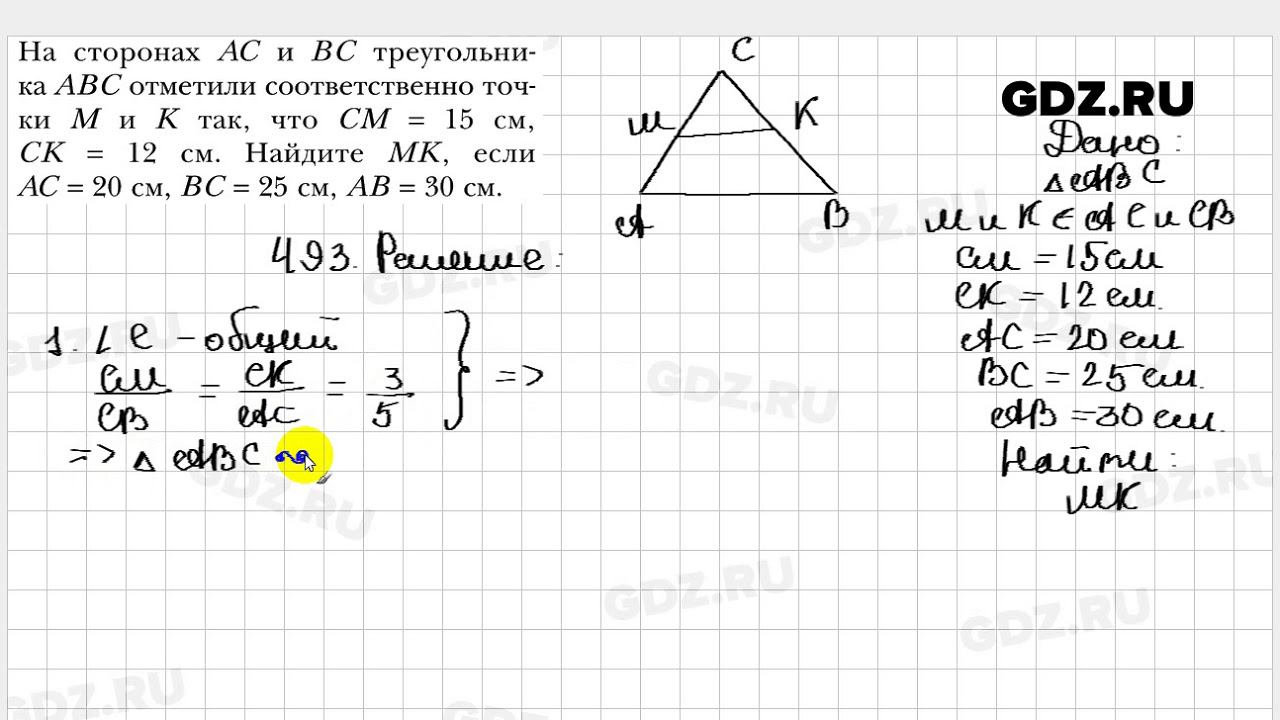 На сторонах AC и BC треугольни-
ка ABC отметили соответственно точ-
ки M и K так, что CM = 15 см,
CK = 12 см. Найдите MK, если
AC = 20 см, BC = 25 см, AB = 30 см.
C
M
K
A
B
GDZ.RU
Дано:
△ABC
M и K ∈ AC и CB
CM = 15 см
CK = 12 см.
AC = 20 см
BC = 25 см.
AB = 30 см.
Найти:
MK
493. Решение:
1. ∠C – общий
CM/CB = CK/AC = 3/5 } =>
=> △ ABC ∾
GDZ.RU
GDZ.RU
GDZ.RU
GDZ.RU
GDZ.RU
GDZ.RU
GDZ.RU
GDZ.RU